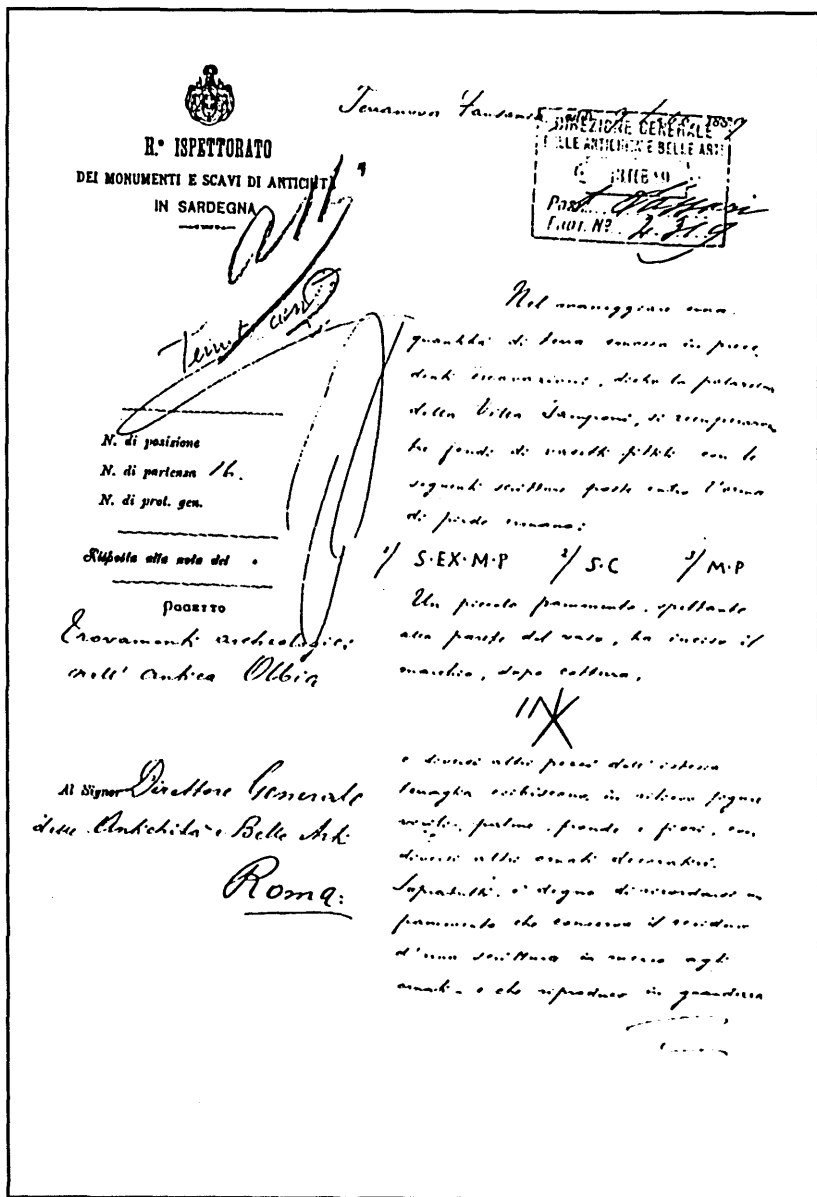 R.º ISPETTORATO
DEI MONUMENTI E SCAVI DI ANTICHITÀ
IN SARDEGNA
Terranova Fausania
DIREZIONE GENERALE
DELLE ANTICHITÀ E BELLE ARTI
Posiz.
N. di posizione
N. di partenza 16.
N. di prot. gen.
Risposta alla nota del
OGGETTO
Trovamenti archeologici
nell' antica Olbia
Al Signor Direttore Generale
delle Antichità e Belle Arti
Roma:
Nel maneggiare una
quantità di terra smossa in prece
denti escavazioni, dietro la palazzina
della Villa Tamponi, si recuperarono
tre fondi di vasetti fittili con le
seguenti scritture poste entro l'orma
di piede umano:
1/ S·EX·M·P 2/ S·C 3/ M·P
Un piccolo frammento, spettante
alla parete del vaso, ha inciso il
marchio, dopo cottura,
e diversi altri pezzi dell'istessa
fovaglia esibiscono, in rilievo figure
virili, palme, fronde e fiori, con
diversi altri ornati decorativi.
Sopratutti, è degno di ricordarsi un
frammento che conserva il residuo
d'una scrittura in mezzo agli
ornati - e che riproduco in grandezza